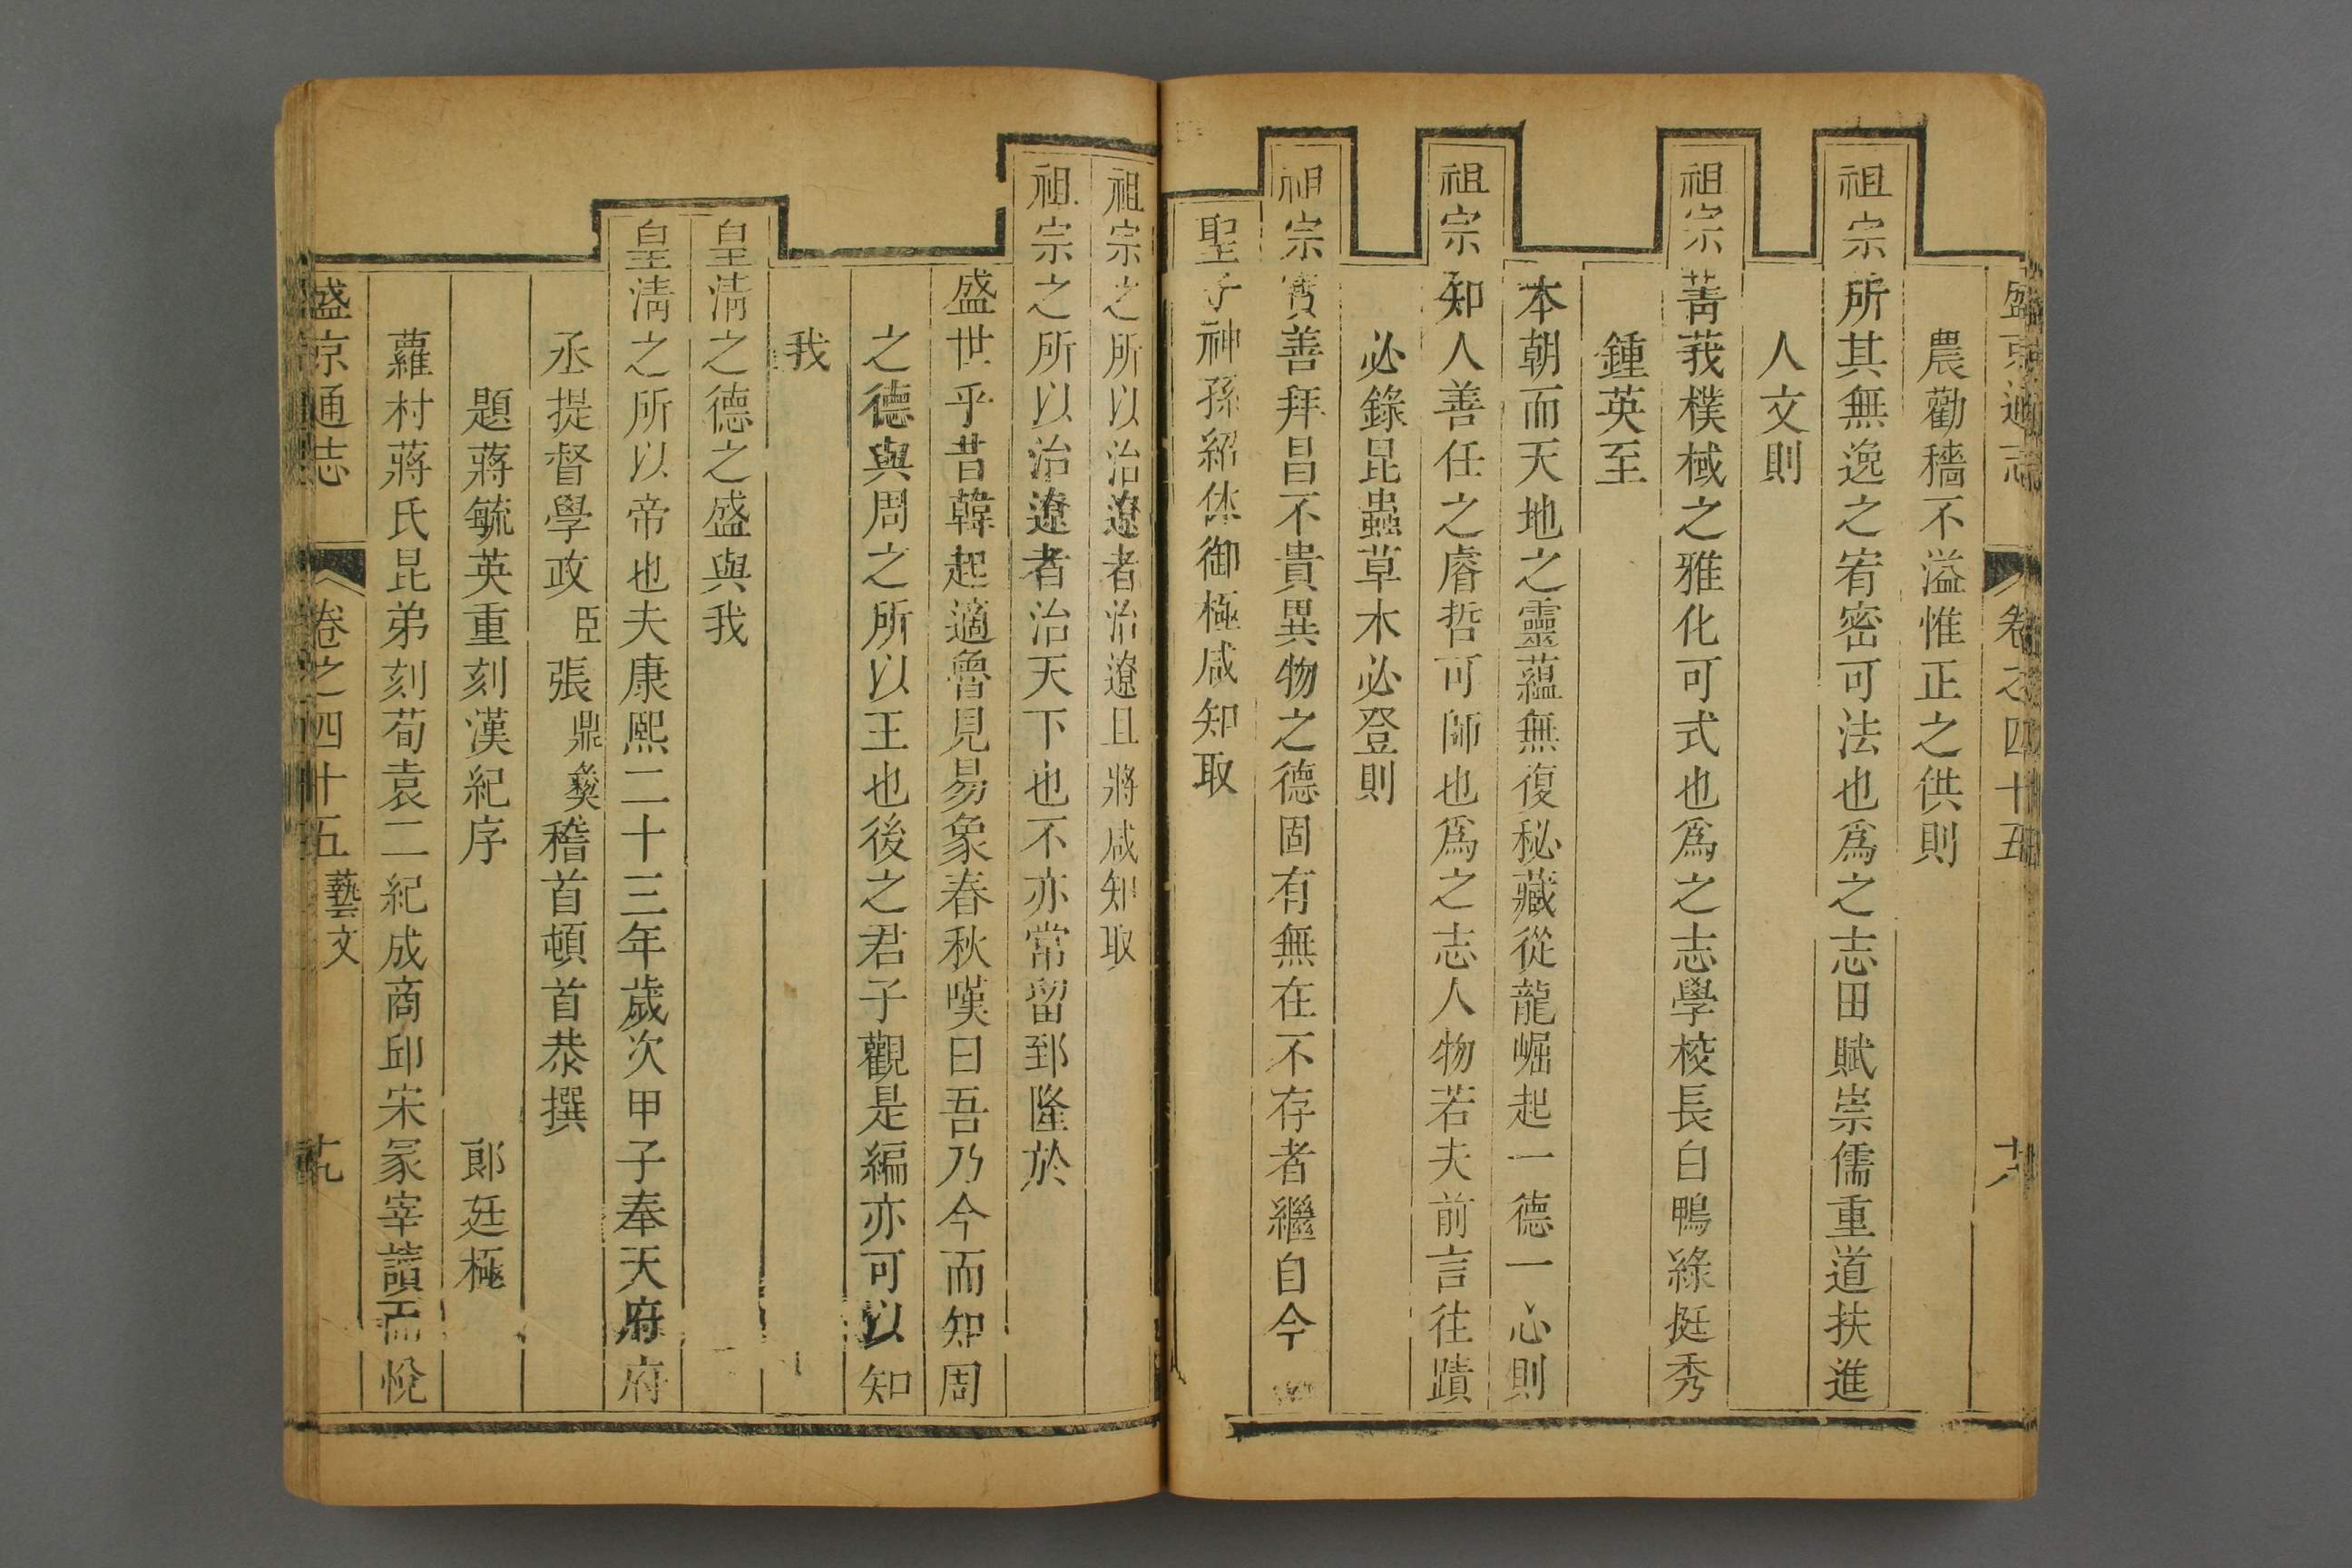 盛京通志 卷之四十五 十八
農勸穡不溢惟正之供則
祖宗所其無逸之宥密可法也為之志田賦崇儒重道扶進
人文則
祖宗菁莪樸棫之雅化可式也為之志學校長白鴨綠挺秀
鍾英至
本朝而天地之靈蘊無復秘藏從龍崛起一德一心則
祖宗知人善任之睿哲可師也為之志人物若夫前言往蹟
必錄昆蟲草木必登則
祖宗寶善拜昌不貴異物之德固有無在不存者繼自今
聖子神孫紹休御極咸知取
祖宗之所以治遼者治遼且將咸知取
祖宗之所以治遼者治天下也不亦常留郅隆於
盛世乎昔韓起適魯見易象春秋嘆曰吾乃今而知周
之德與周之所以王也後之君子觀是編亦可以知
我
皇清之德之盛與我
皇清之所以帝也夫康熙二十三年歲次甲子奉天府府
丞提督學政臣張鼎彝稽首頓首恭撰
題蔣毓英重刻漢紀序 郎廷極
蘿村蔣氏昆弟刻荀袁二紀成商邱宋冢宰讀而悅
盛京通志 卷之四十五 藝文 十九